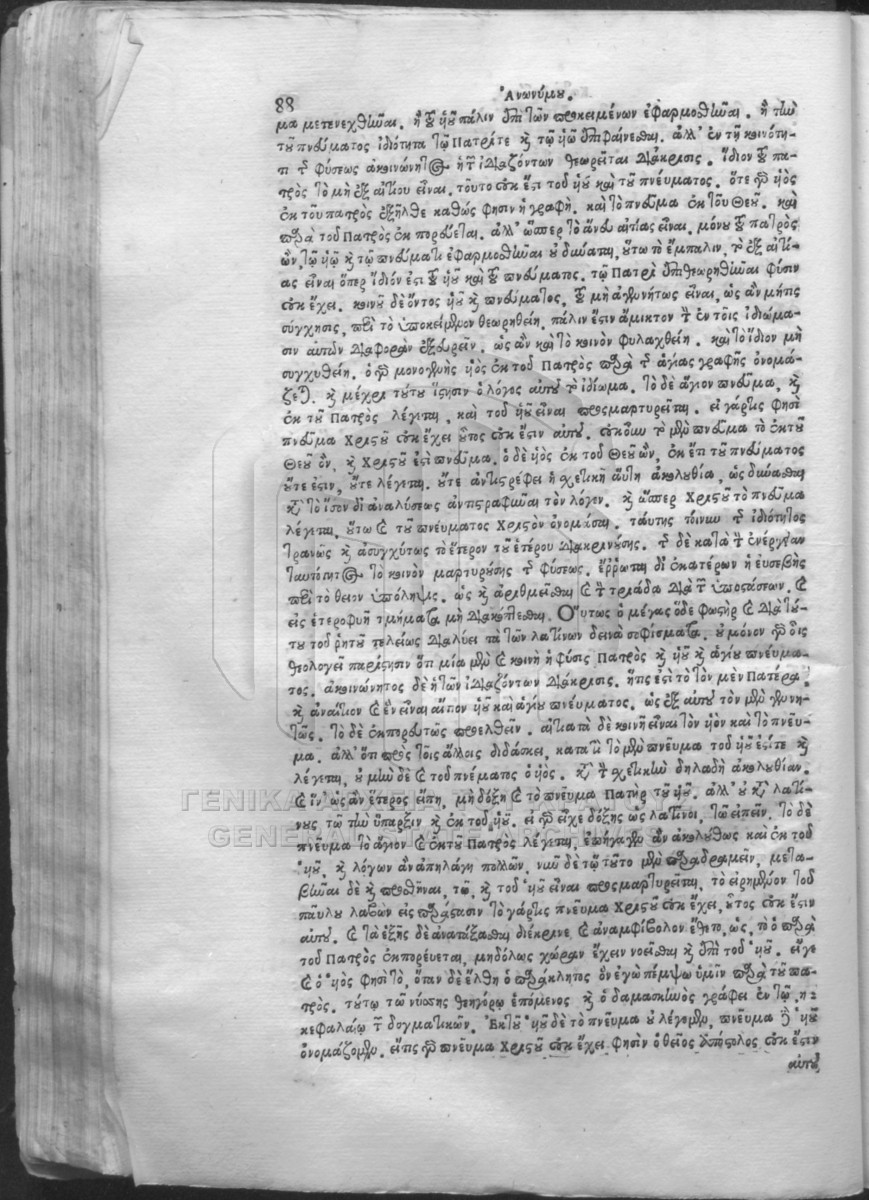 88
Ἀνωνύμου.
μα μετενεχθῆναι. ἢ τοῦ ὑοῦ πάλιν ἐπὶ τῶν προκειμένων ἐφαρμοσθῆναι. ἢ τὴν
τοῦ πνεύματος ἰδιότητα τῷ Πατρί τε καὶ τῷ ὑῷ ἐπιφαίνεσθαι. ἀλλ' ἐν τῇ κοινότη-
τι τῆς φύσεως ἀκοινώνητος ἡ τῶν ἰδιαζόντων θεωρεῖται διάκρισις. ἴδιον τοῦ πα-
τρὸς τὸ μὴ ἐξ αἰτίου εἶναι. τοῦτο οὐκ ἔστι τοῦ ὑοῦ καὶ τοῦ πνεύματος. ὅτε γὰρ ὑὸς
ἐκ τοῦ πατρὸς ἐξῆλθε καθώς φησιν ἡ γραφὴ. καὶ τὸ πνεῦμα ἐκ τοῦ Θεοῦ. καὶ
παρὰ τοῦ Πατρὸς ἐκπορεύεται. ἀλλ' ὥσπερ τὸ ἄνευ αἰτίας εἶναι. μόνου τοῦ πατρὸς
ὢν, τῷ ὑῷ καὶ τῷ πνεύματι ἐφαρμοσθῆναι οὐ δύναται, οὕτω τὸ ἔμπαλιν, τὸ ἐξ αἰτί-
ας εἶναι ὅπερ ἴδιόν ἐστι τοῦ ὑοῦ καὶ τοῦ πνεύματος. τῷ Πατρὶ ἐπιθεωρηθῆναι φύσιν
οὐκ ἔχει. κοινοῦ δὲ ὄντος ὑοῦ καὶ πνεύματος, τοῦ μὴ ἀγεννήτως εἶναι, ὡς ἂν μήτις
σύγχησις, περὶ τὸ ὑποκείμενον θεωρηθείη, πάλιν ἔστιν ἄμικτον τὴν ἐν τοῖς ἰδιώμα-
σιν αὐτῶν διαφορὰν ἐξευρεῖν. ὡς ἂν καὶ τὸ κοινὸν φυλαχθείη. καὶ τὸ ἴδιον μὴ
συγχυθείη. ὁ γὰρ μονογενὴς ὑὸς ἐκ τοῦ Πατρὸς παρὰ τῆς ἁγίας γραφῆς ὀνομά-
ζεται. καὶ μέχρι τούτου ἵστησιν ὁ λόγος αὐτοῦ τὸ ἰδίωμα. Τὸ δὲ ἅγιον πνεῦμα, καὶ
ἐκ τοῦ Πατρὸς λέγεται, καὶ τοῦ ὑοῦ εἶναι προσμαρτυρεῖται. εἰ γάρ τις φησὶ
πνεῦμα Χριστοῦ οὐκ ἔχει οὗτος οὐκ ἔστιν αὐτοῦ. οὐκοῦν τὸ μὲν πνεῦμα τὸ ἐκ τοῦ
Θεοῦ ὂν, καὶ Χριστοῦ ἐστὶ πνεῦμα. ὁ δὲ ὑὸς ἐκ τοῦ Θεοῦ ὢν, οὐκ ἔτι τοῦ πνεύματος
οὔτε ἐστὶν, οὔτε λέγεται. οὔτε ἀντιστρέφει ἡ σχετικὴ αὕτη ἀκολουθία, ὡς δύνασθαι
κατὰ τὸ ἴσον δι' ἀναλύσεως ἀντιστραφῆναι τὸν λόγον. καὶ ὥσπερ Χριστοῦ τὸ πνεῦμα
λέγεται, οὕτω καὶ τοῦ πνεύματος Χριστὸν ὀνομάσαι. ταύτης τοίνυν τῆς ἰδιότητος
τρανῶς καὶ ἀσυγχύτως τὸ ἕτερον τοῦ ἑτέρου διακρινούσης. τῆς δὲ κατὰ τὴν ἐνέργειαν
ταυτότητος τὸ κοινὸν μαρτυρούσης τῆς φύσεως. ἔρρωται δι' ἑκατέρων ἡ εὐσεβὴς
περὶ τὸ θεῖον ὑπόληψις. ὡς καὶ ἀριθμεῖσθαι καὶ τὴν τριάδα διὰ τῶν ὑποστάσεων. καὶ
εἰς ἑτεροφυῆ τμήματα μὴ διακόπτεσθαι. Οὕτως ὁ μέγας ὅδε φωστὴρ καὶ διὰ τού-
του τοῦ ῥητοῦ τελείως διαλύει τὰ τῶν λατίνων δεινὰ σοφίσματα. οὐ μόνον γὰρ οἷς
θεολογεῖ παρίστησιν ὅτι μία μὲν καὶ κοινὴ ἡ φύσις Πατρὸς καὶ ὑοῦ καὶ ἁγίου πνεύμα-
τος. ἀκοινώνητος δὲ ἡ τῶν ἰδιαζόντων διάκρισις. ἥτις ἐστὶ τὸ τὸν μὲν Πατέρα
καὶ ἀναίτιον καὶ ἓν εἶναι αἴτιον ὑοῦ καὶ ἁγίου πνεύματος. ὡς ἐξ αὐτοῦ τὸν μὲν γεννη-
τῶς. τὸ δὲ ἐκπορευτῶς προελθεῖν. αἰτιατὰ δὲ κοινῇ εἶναι τὸν ὑὸν καὶ τὸ πνεῦ-
μα. ἀλλ' ὅτι πρὸς τοῖς ἄλλοις διδάσκει, κατὰ τί τὸ μὲν πνεῦμα τοῦ ὑοῦ ἐστί τε καὶ
λέγεται, οὐ μὴν δὲ καὶ τοῦ πνέματος ὁ ὑὸς. κατὰ τὴν σχετικὴν δηλαδὴ ἀκολουθίαν.
καὶ ἵν' ὡς ἂν ἕτερος εἴπῃ, μὴ δόξῃ καὶ τὸ πνεῦμα Πατὴρ τοῦ ὑοῦ. ἀλλ' οὐ κατὰ λατί-
νους τῷ τὴν ὕπαρξιν καὶ ἐκ τοῦ ὑοῦ. εἰ γὰρ εἶχε δόξης ὡς λατῖνοι, τῷ εἰπεῖν, τὸ δὲ
πνεῦμα τὸ ἅγιον καὶ ἐκ τοῦ Πατρὸς λέγεται, ἐπήγαγεν ἂν ἀκολούθως καὶ ἐκ τοῦ
ὑοῦ, καὶ λόγων ἂν ἀπηλάγη πολλῶν, νῦν δὲ τῷ τοῦτο μὲν παραδραμεῖν, μετα-
βῆναι δὲ καὶ προσθῆναι, τῷ, καὶ τοῦ ὑοῦ εἶναι προσμαρτυρεῖται, τὸ εἰρημένον τοῦ
παύλου λαβὼν εἰς παράστασιν τὸ γάρ τις πνεῦμα Χριστοῦ οὐκ ἔχει, οὗτος οὐκ ἔστιν
αὐτοῦ. καὶ τὰ ἑξῆς δὲ ἀνατάξασθαι διέκρινε καὶ ἀναμφίβολον ἔθετο, ὡς, τὸ ὁ παρὰ
τοῦ Πατρὸς ἐκπορεύεται, μηδόλως χώραν ἔχειν νοεῖσθαι καὶ ἐπὶ τοῦ ὑοῦ. εἴγε
καὶ ὁ ὑὸς φησὶ τὸ, ὅταν δὲ ἔλθῃ ὁ παράκλητος ὃν ἐγὼ πέμψω ὑμῖν παρὰ τοῦ πα-
τρός. τούτῳ τῷ νύσσης θεηγόρῳ ἑπόμενος καὶ ὁ δαμασκηνὸς γράφει ἐν τῷ, η
κεφαλαίῳ τῶν δογματικῶν. Ἐκ τοῦ ὑοῦ δὲ τὸ πνεῦμα οὐ λέγομεν, πνεῦμα δὲ ὑοῦ
ὀνομάζομεν. εἴ τις γὰρ πνεῦμα Χριστοῦ οὐκ ἔχει φησὶν ὁ θεῖος ἀπόστολος οὐκ ἔστιν
αὐτοῦ
ΓΕΝΙΚΑ ΑΡΧΕΙΑ ΤΟΥ ΚΡΑΤΟΥΣ
GENERAL STATE ARCHIVES